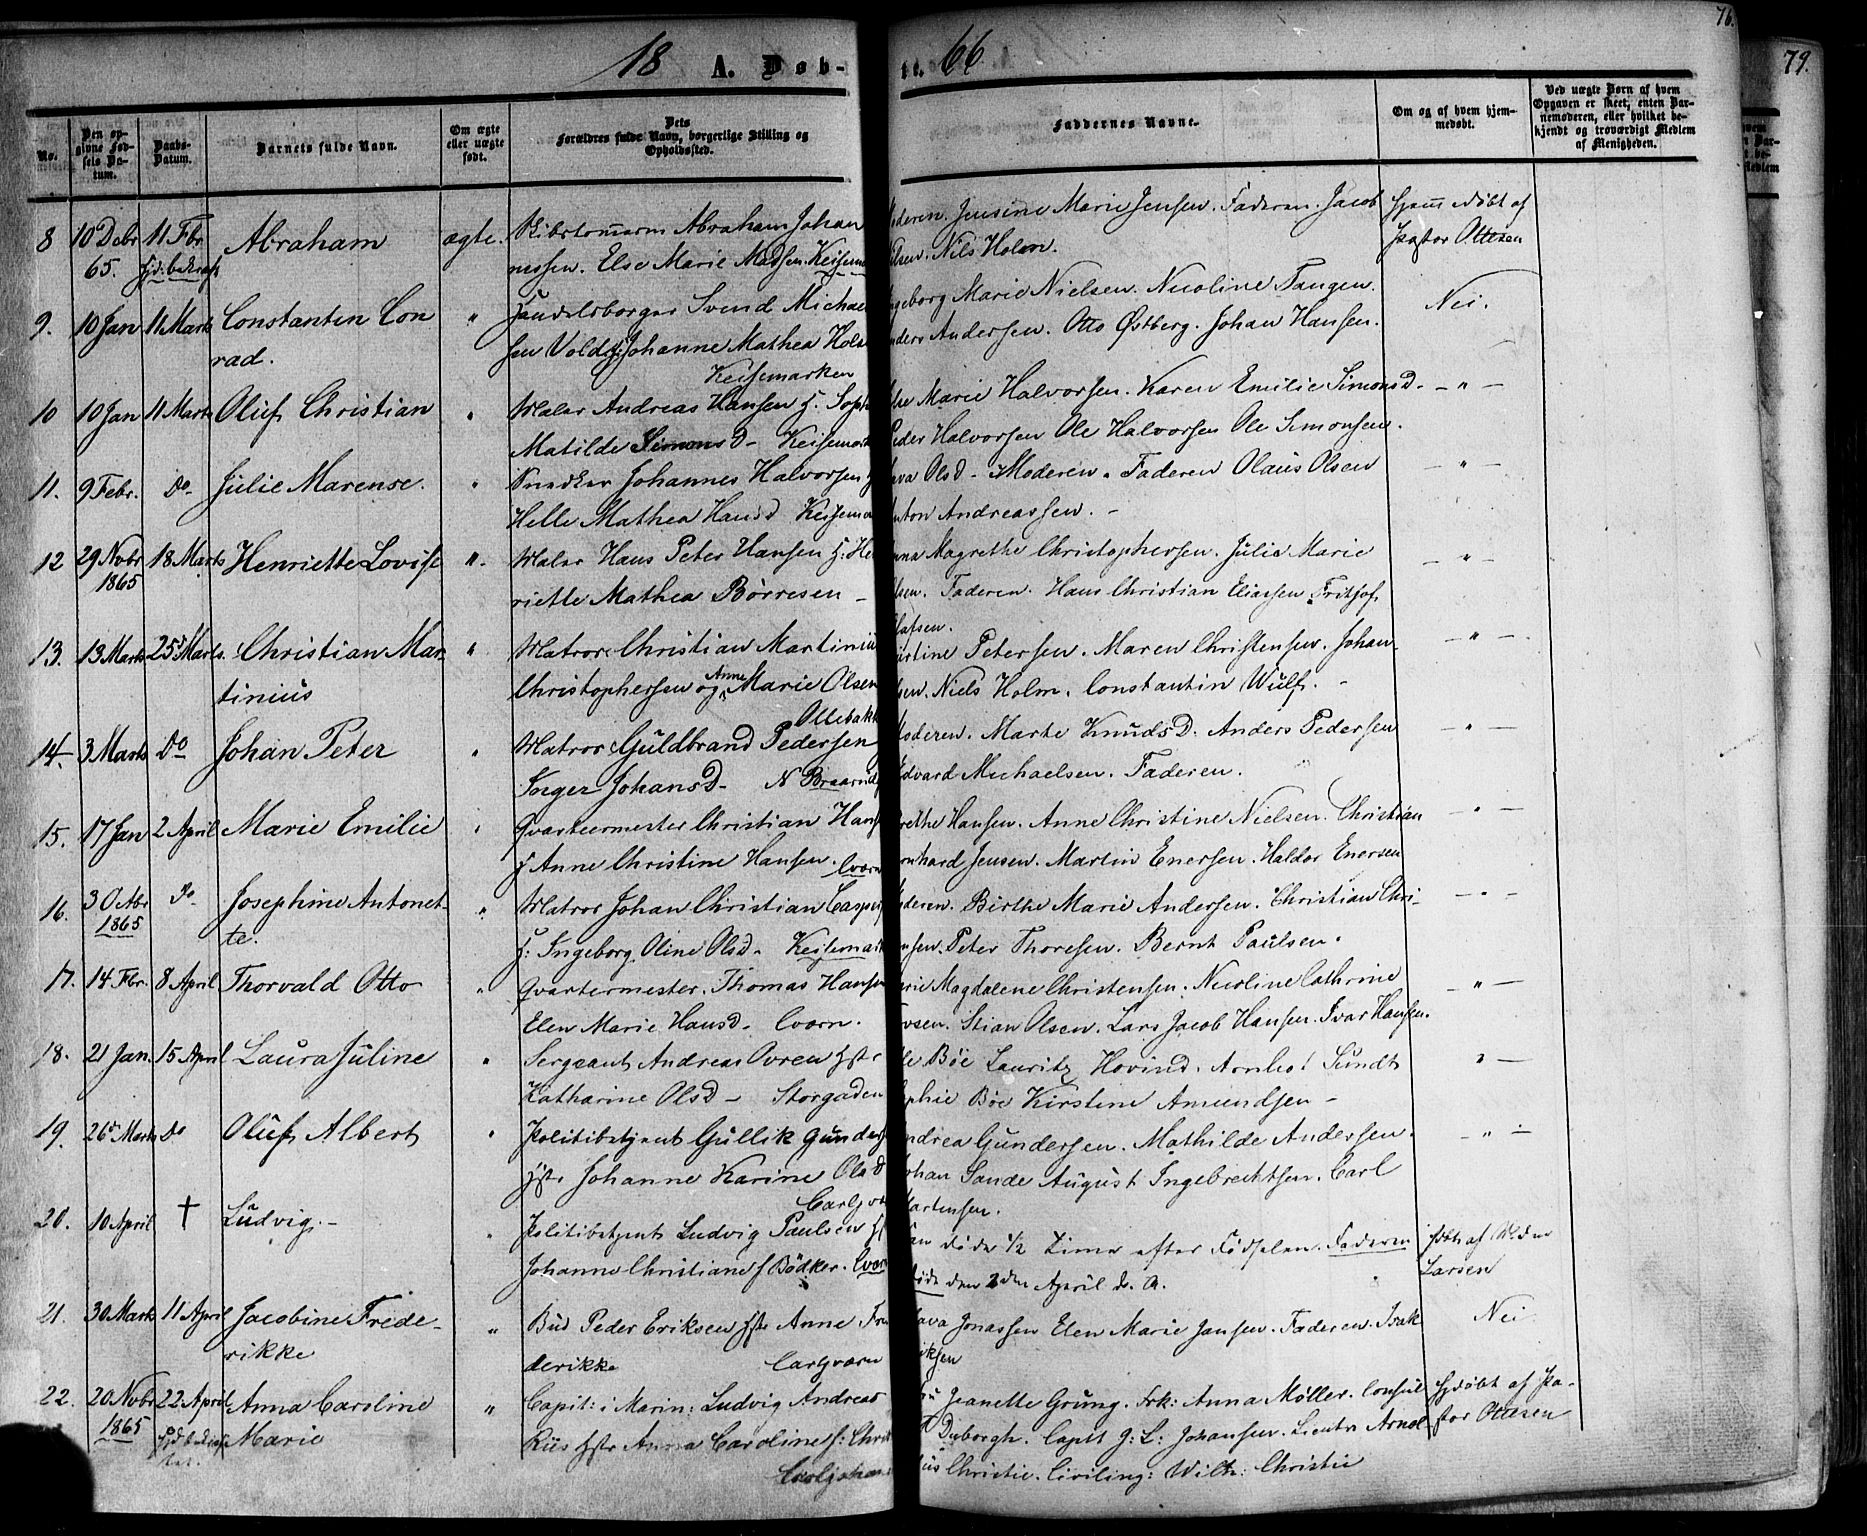 76.
79.
18 A. Døb-
te. 66.
No.
Den op-
givne Fød-
sels Da-
tum.
Daabs-
Datum.
Barnets fulde Navn.
Om ægte
eller uægte
født.
Dets
Forældres fulde Navn, borgerlige Stilling og
Opholdssted.
Faddernes Navne.
Om og af hvem hjem-
medøbt.
Ved uægte Børn af hvem
Opgaven er skeet, enten Bar-
nemoderen, eller hvilket be-
kjendt og troværdigt Medlem
af Menigheden.
8 10 Debr 11 Fbr. Abraham ægte. Abraham Johan
65. nessen. Else Marie Madsen.
Jensine Marie Jensen. Faderen. Jacob
Nils Holm.
Hjem døbt af
Pastor Ottesen
9. 10 Jan 11 Marts Constantin Con " Handelsborger Svend Michael
rad. sen Vold Johanne Mathea Hols
Keisemarken
Marie Nielsen. Nicoline Tangen.
Andersen. Otto Østberg. Johan Hansen.
Nei.
10 10 Jan 11 Marts Oluf Christian " Maler Andreas Hansen H: Soph
Matilde Simonsd -
Marie Halvorsen. Karen Emilie Simonsd. - " -
Peder Halvorsen Ole Halvorsen Ole Simonsen.
11. 9 Febr. Do - Julie Marense. " Snedker Johannes Halvorsen
Helle Mathea Hansd
Olsd - Moderen. Faderen Olaus Olsen - " -
Anton Andreassen. -
12 29 Novbr 18 Marts Henriette Lovise ". Maler Hans Peter Hansen H: Hen
1865 riette Mathea Børresen -
Magrethe Christophersen. Julie Marie - " -
Faderen. Hans Christian Eliassen. Fritjof
Olafsen.
13. 13 Marts 25 Marts. Christian Mar- " Matros Christian Martiniu
tinius Christophersen og Anne Marie Olsen
Ollebakk
Petersen. Maren Christensen. Johan - " -
Niels Holm. Constantin Wulf. -
14 3 Marts Do Johan Peter " Matros Guldbrand Pedersen
Johansd -
Moderen. Marte Knudsd. Anders Pedersen - " -
Edvard Michaelsen. Faderen.
15. 17 Jan 2 April Marie Emilie " Qvarteermester Christian Hans
H Anne Christine Hansen.
Hansen. Anne Christine Nielsen. Christian - " -
Jensen. Martin Enersen. Haldor Enersen
16. Do Josephine Antonet- " Matros Johan Christian Casp
1865 te. H: Ingeborg Oline Olsd -
Birthe Marie Andersen. Christian Chri- - " -
Peter Thoresen. Bernt Paulsen.
17. 14 Fbr. 8 April Thorvald Otto " Qvartermester. Thomas Hansen
Elen Marie Hansd.
Magdalene Christensen. Nicoline Cathrine - " -
Stian Olsen. Lars Jacob Hansen. Ivar Hansen.
18. 21 Jan. 15 April Laura Juline " Sergeant Andreas Hstr
Katharine Olsd - Storgaden
Bøe Lauritz Hovind. Sundt " -
Sophie Bøe Kirstine Amundsen -
19. 26 Marts Do Oluf Albert " Politibetjent Gullik Gunders
Hstr Johanne Karine Olsd
Andrea Gundersen. Mathilde Andersen. - " -
Johan Sande August Ingebrechtsen. Carl
Martensen.
20. 10 April † Ludvig. - " Politibetjent Ludvig Paulsen
Johanne Christiane f Bødker.
døde 1/2 Time efter Fødselen. Faderen
døde den 2den April d. A.
Larsen
21. 30 Marts 11 April Jacobine Frede- " Bud Peder Eriksen Hstr Anne Fre
rikke derikke
Jonassen Elen Marie Jansen. Faderen. Isak
Nei
22. 20 Novbr 22 April Anna Caroline " Capit: i Marin: Ludvig Andreas
1865 Marie Riis Hstr Anna Caroline f: Christ
Carl johans
Jeanette Grung. Frk: Anna Møller. Consul
Duborgh. Capit J: L: Johansen. Lieutn Arnol
Christie. Civiling: Wilh: Christie
Hjdøbt af Pa-
stor Ottesen